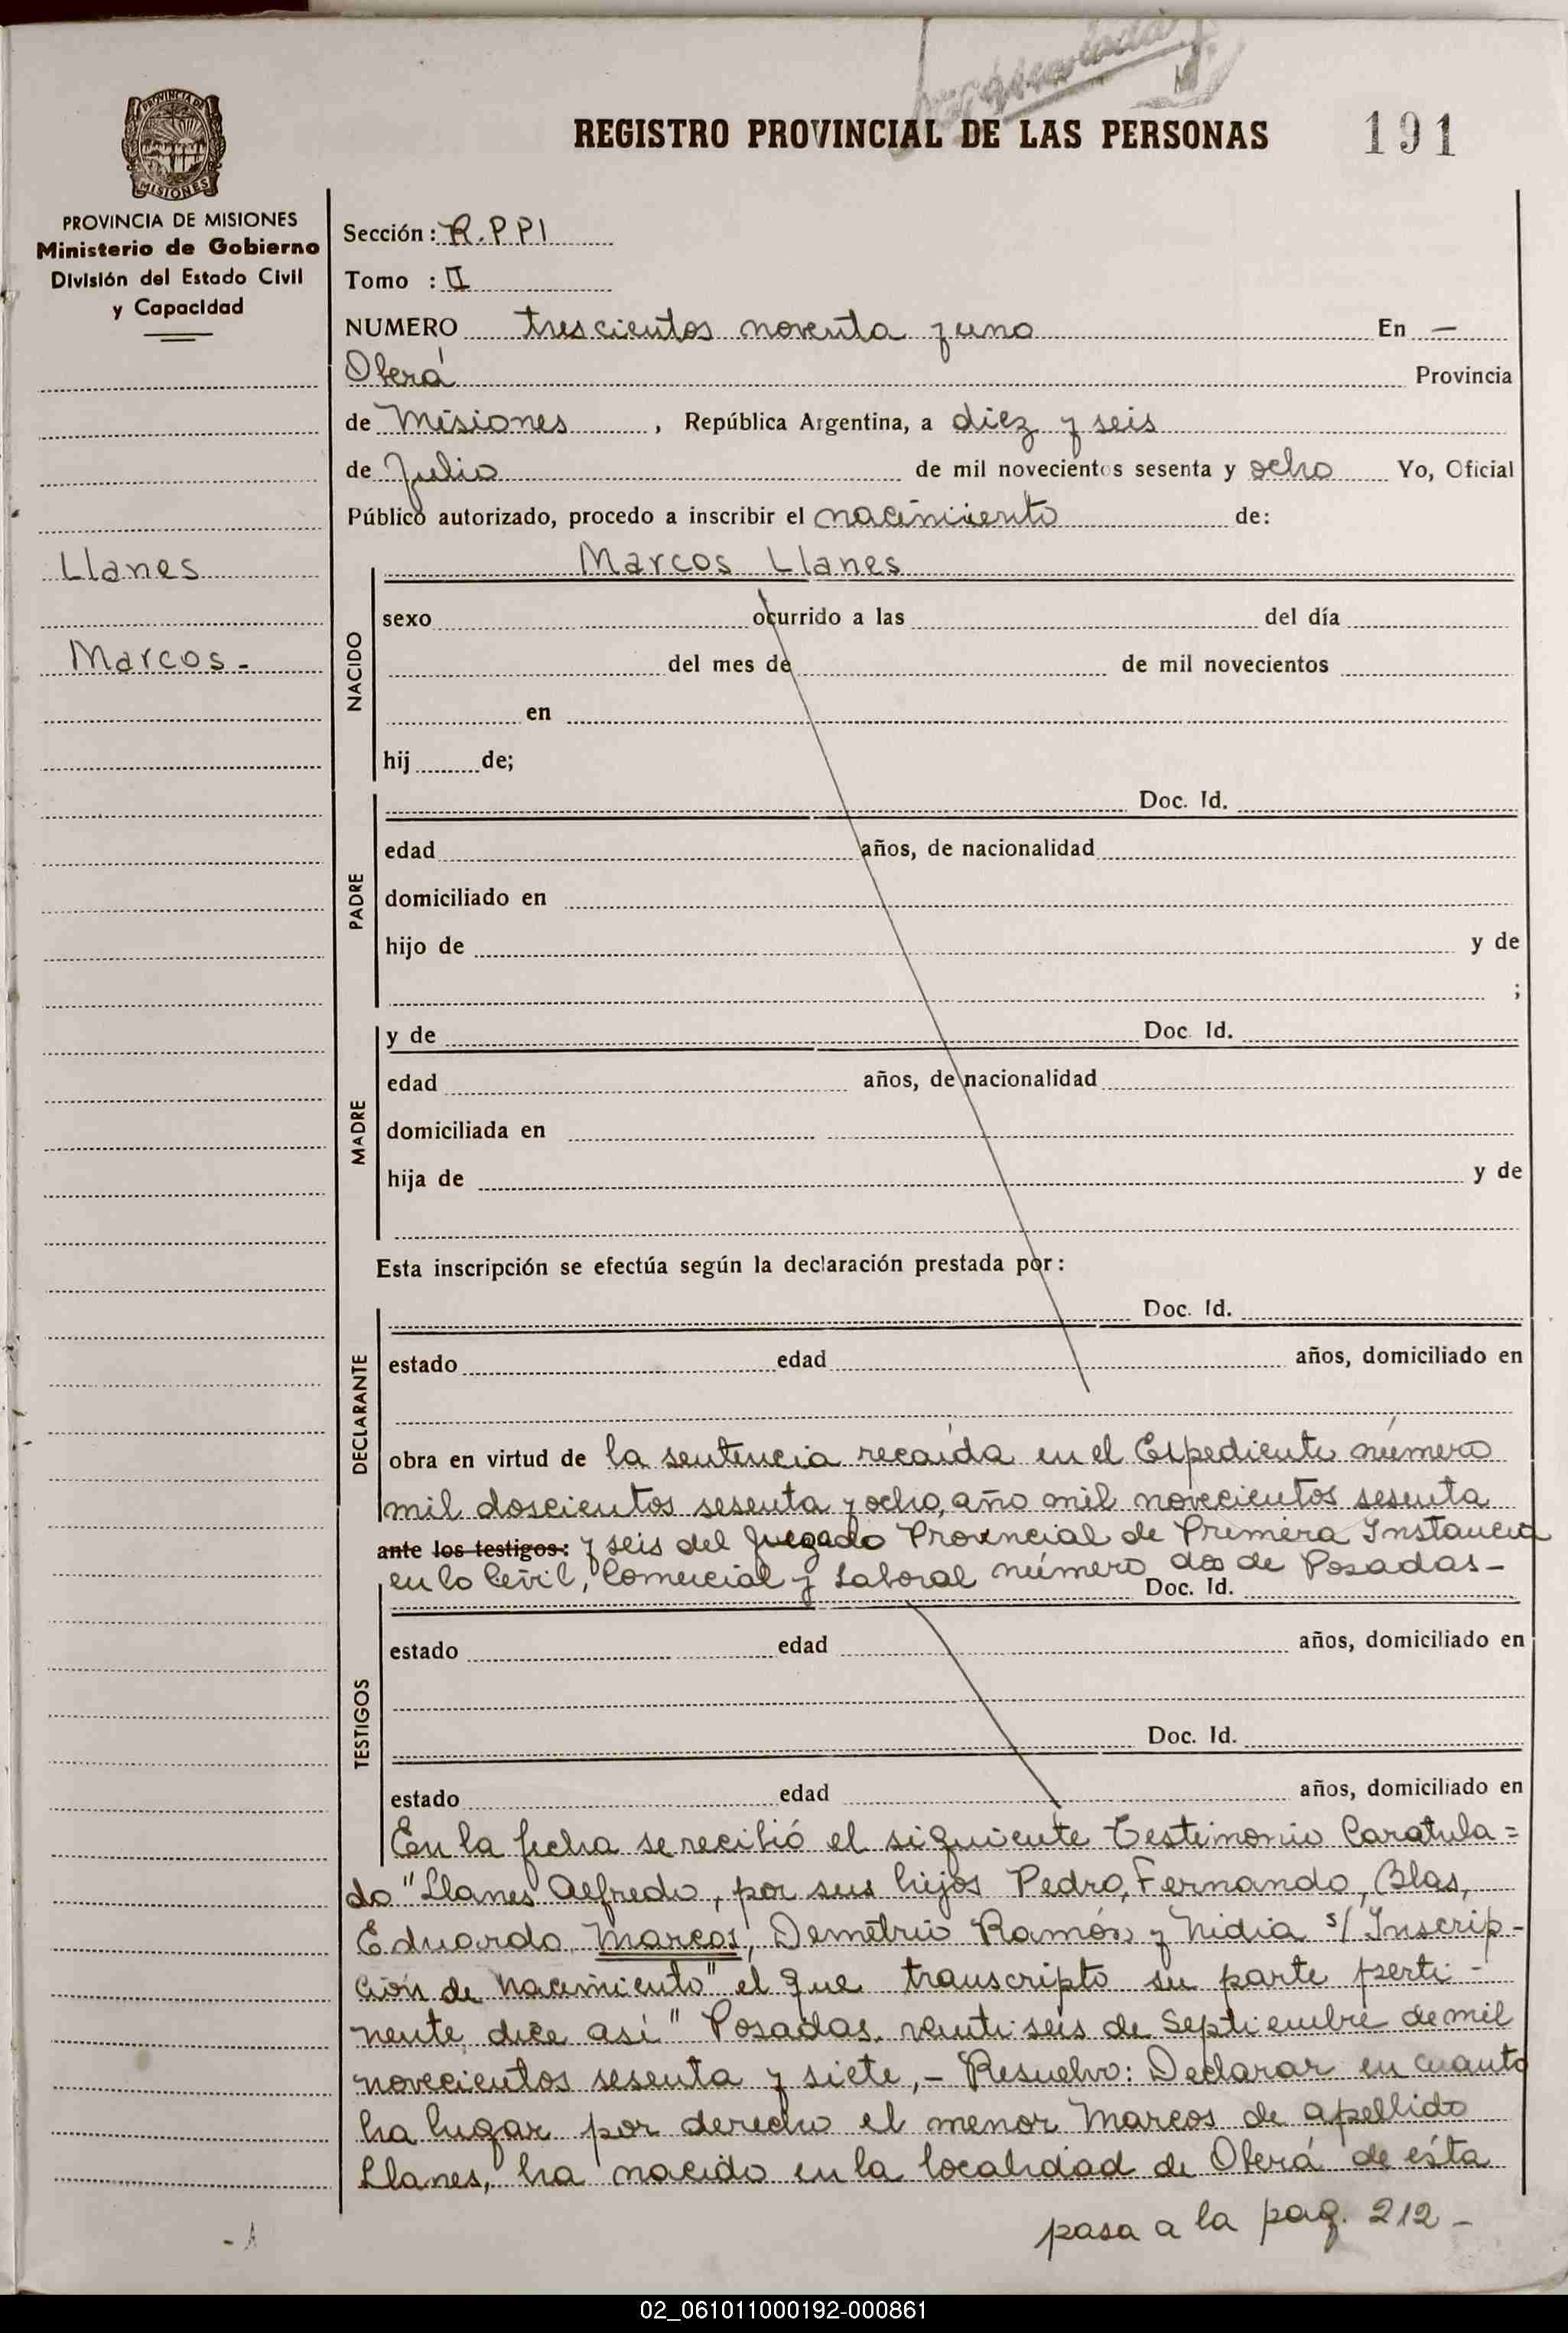 191
REGISTRO PROVINCIAL DE LAS PERSONAS
PROVINCIA DE
MISIONES
PROVINCIA DE MISIONES
Ministerio de Gobierno
División del Estado Civil
y Capacidad
Llanes
Marcos -
Sección: R.PPI
Tomo : II
NUMERO trescientos noventa y uno En —
Oberá Provincia
de Misiones , República Argentina, a diez y seis
de Julio de mil novecientos sesenta y ocho Yo, Oficial
Público autorizado, procedo a inscribir el nacimiento de:
Marcos Llanes
NACIDO
sexo ocurrido a las del día
del mes de de mil novecientos
en
hij de;
PADRE
Doc. Id.
edad años, de nacionalidad
domiciliado en
hijo de y de
;
MADRE
y de Doc. Id.
edad años, de nacionalidad
domiciliada en
hija de y de
Esta inscripción se efectúa según la declaración prestada por:
DECLARANTE
Doc. Id.
estado edad años, domiciliado en
obra en virtud de la sentencia recaída en el Expediente número
mil doscientos sesenta y ocho, año mil novecientos sesenta
ante los testigos: y seis del Juzgado Provincial de Primera Instancia
en lo Civil, Comercial y Laboral número dos de Posadas -
Doc. Id.
TESTIGOS
estado edad años, domiciliado en
Doc. Id.
estado edad años, domiciliado en
En la fecha se recibió el siguiente Testimonio Caratula=
do "Llanes Alfredo, por sus hijos Pedro, Fernando, Blas,
Eduardo, Marcos, Demetrio Ramón y Nidia s/ Inscrip-
ción de nacimiento" el que transcripto su parte perti-
nente, dice así " Posadas, veintiseis de Septiembre de mil
novecientos sesenta y siete, - Resuelvo: Declarar en cuanto
ha lugar por derecho el menor Marcos de apellido
Llanes, ha nacido en la localidad de Oberá de ésta
pasa a la pag. 212 -
02_061011000192-000861